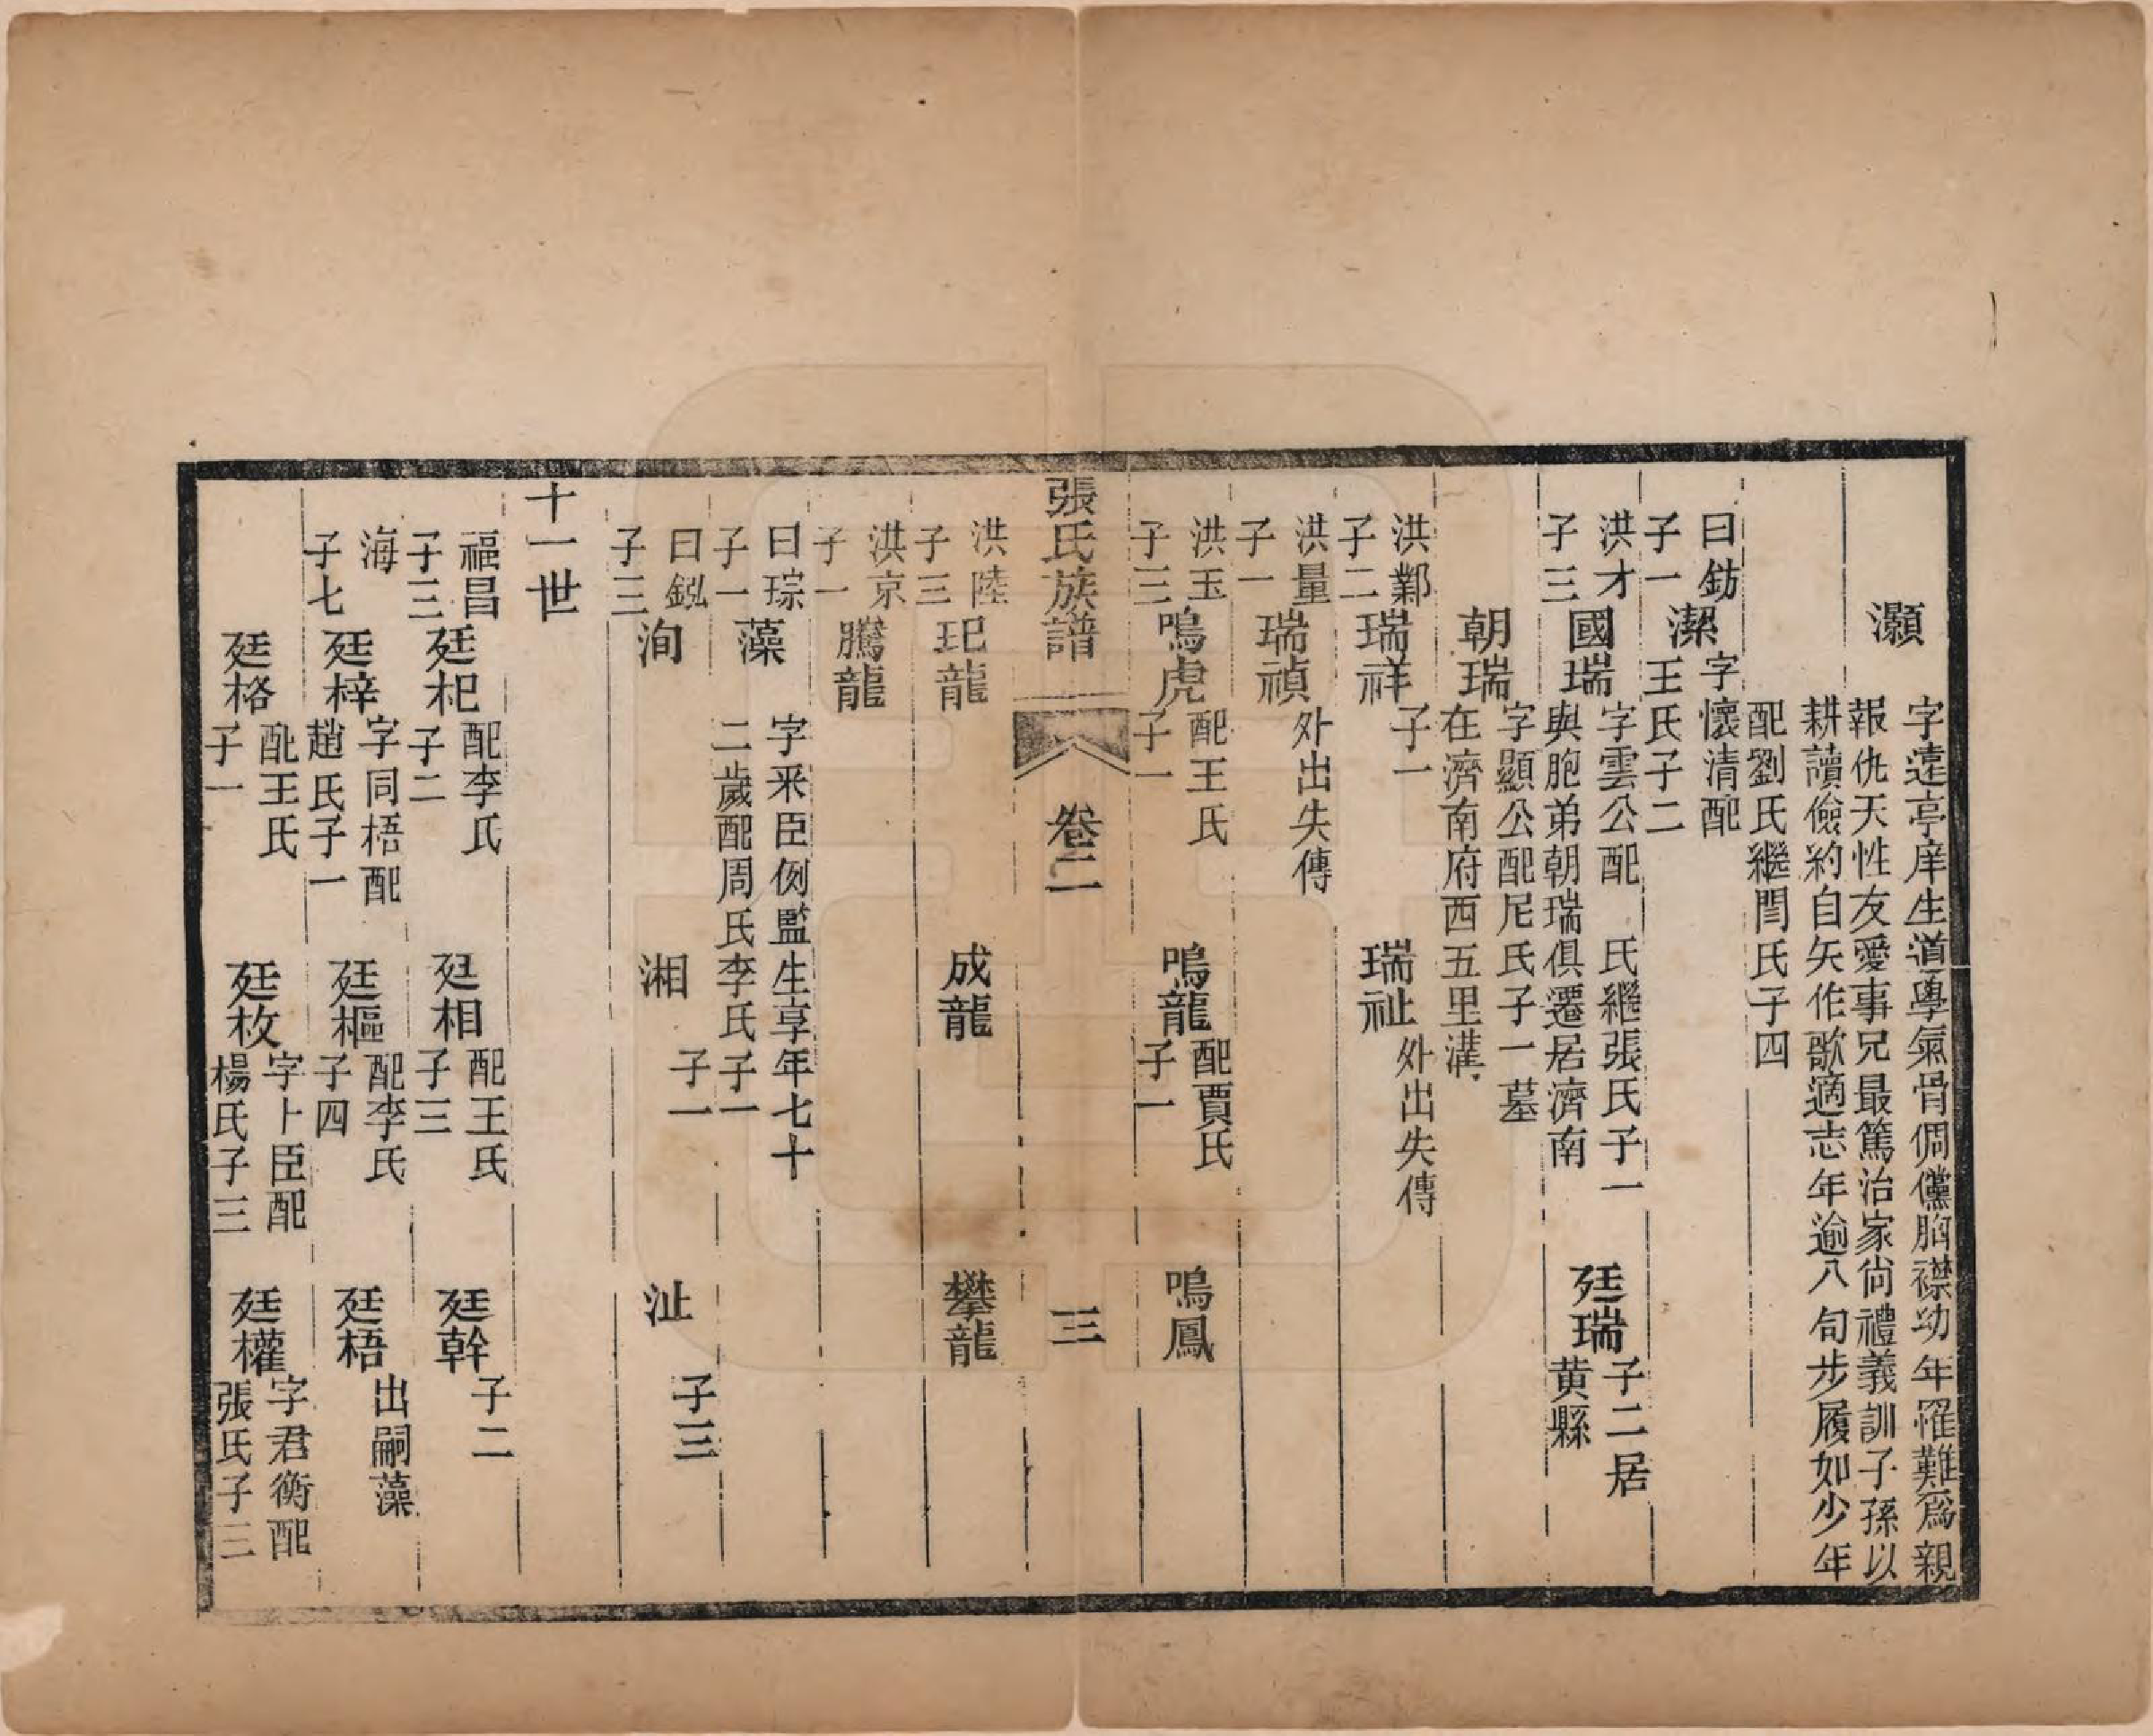 灝
字遠亭庠生道學氣骨倜儻胸襟幼年罹難爲親
報仇天性友愛事兄最篤治家尙禮義訓子孫以
耕讀儉約自矢作歌適志年逾八旬步履如少年
配劉氏繼閆氏子四
曰鈁
子一
潔
字懷清配
王氏子二
洪才
子三
國瑞
字雲公配　氏繼張氏子一
與胞弟朝瑞俱遷居濟南
廷瑞
子二居
黃縣
朝瑞
字顯公配尼氏子一墓
在濟南府西五里溝
洪鄴
子二
瑞祥
子一
瑞祉
外出失傳
洪量
子一
瑞禎
外出失傳
洪玉
子三
鳴虎
配王氏
子一
鳴龍
配賈氏
子一
鳴鳳
張氏族譜
卷二
三
洪陸
子三
玘龍
成龍
攀龍
洪京
子一
騰龍
曰琮
子一
藻
字釆臣例監生享年七十
二歲配周氏李氏子一
曰鈊
子三
洵
湘
子一
沚
子三
十一世
福昌
子三
廷杞
配李氏
子二
廷相
配王氏
子三
廷幹
子二
海
子七
廷梓
字同梧配
趙氏子一
廷樞
配李氏
子四
廷梧
出嗣藻
廷格
配王氏
子一
廷枚
字卜臣配
楊氏子三
廷權
字君衡配
張氏子三